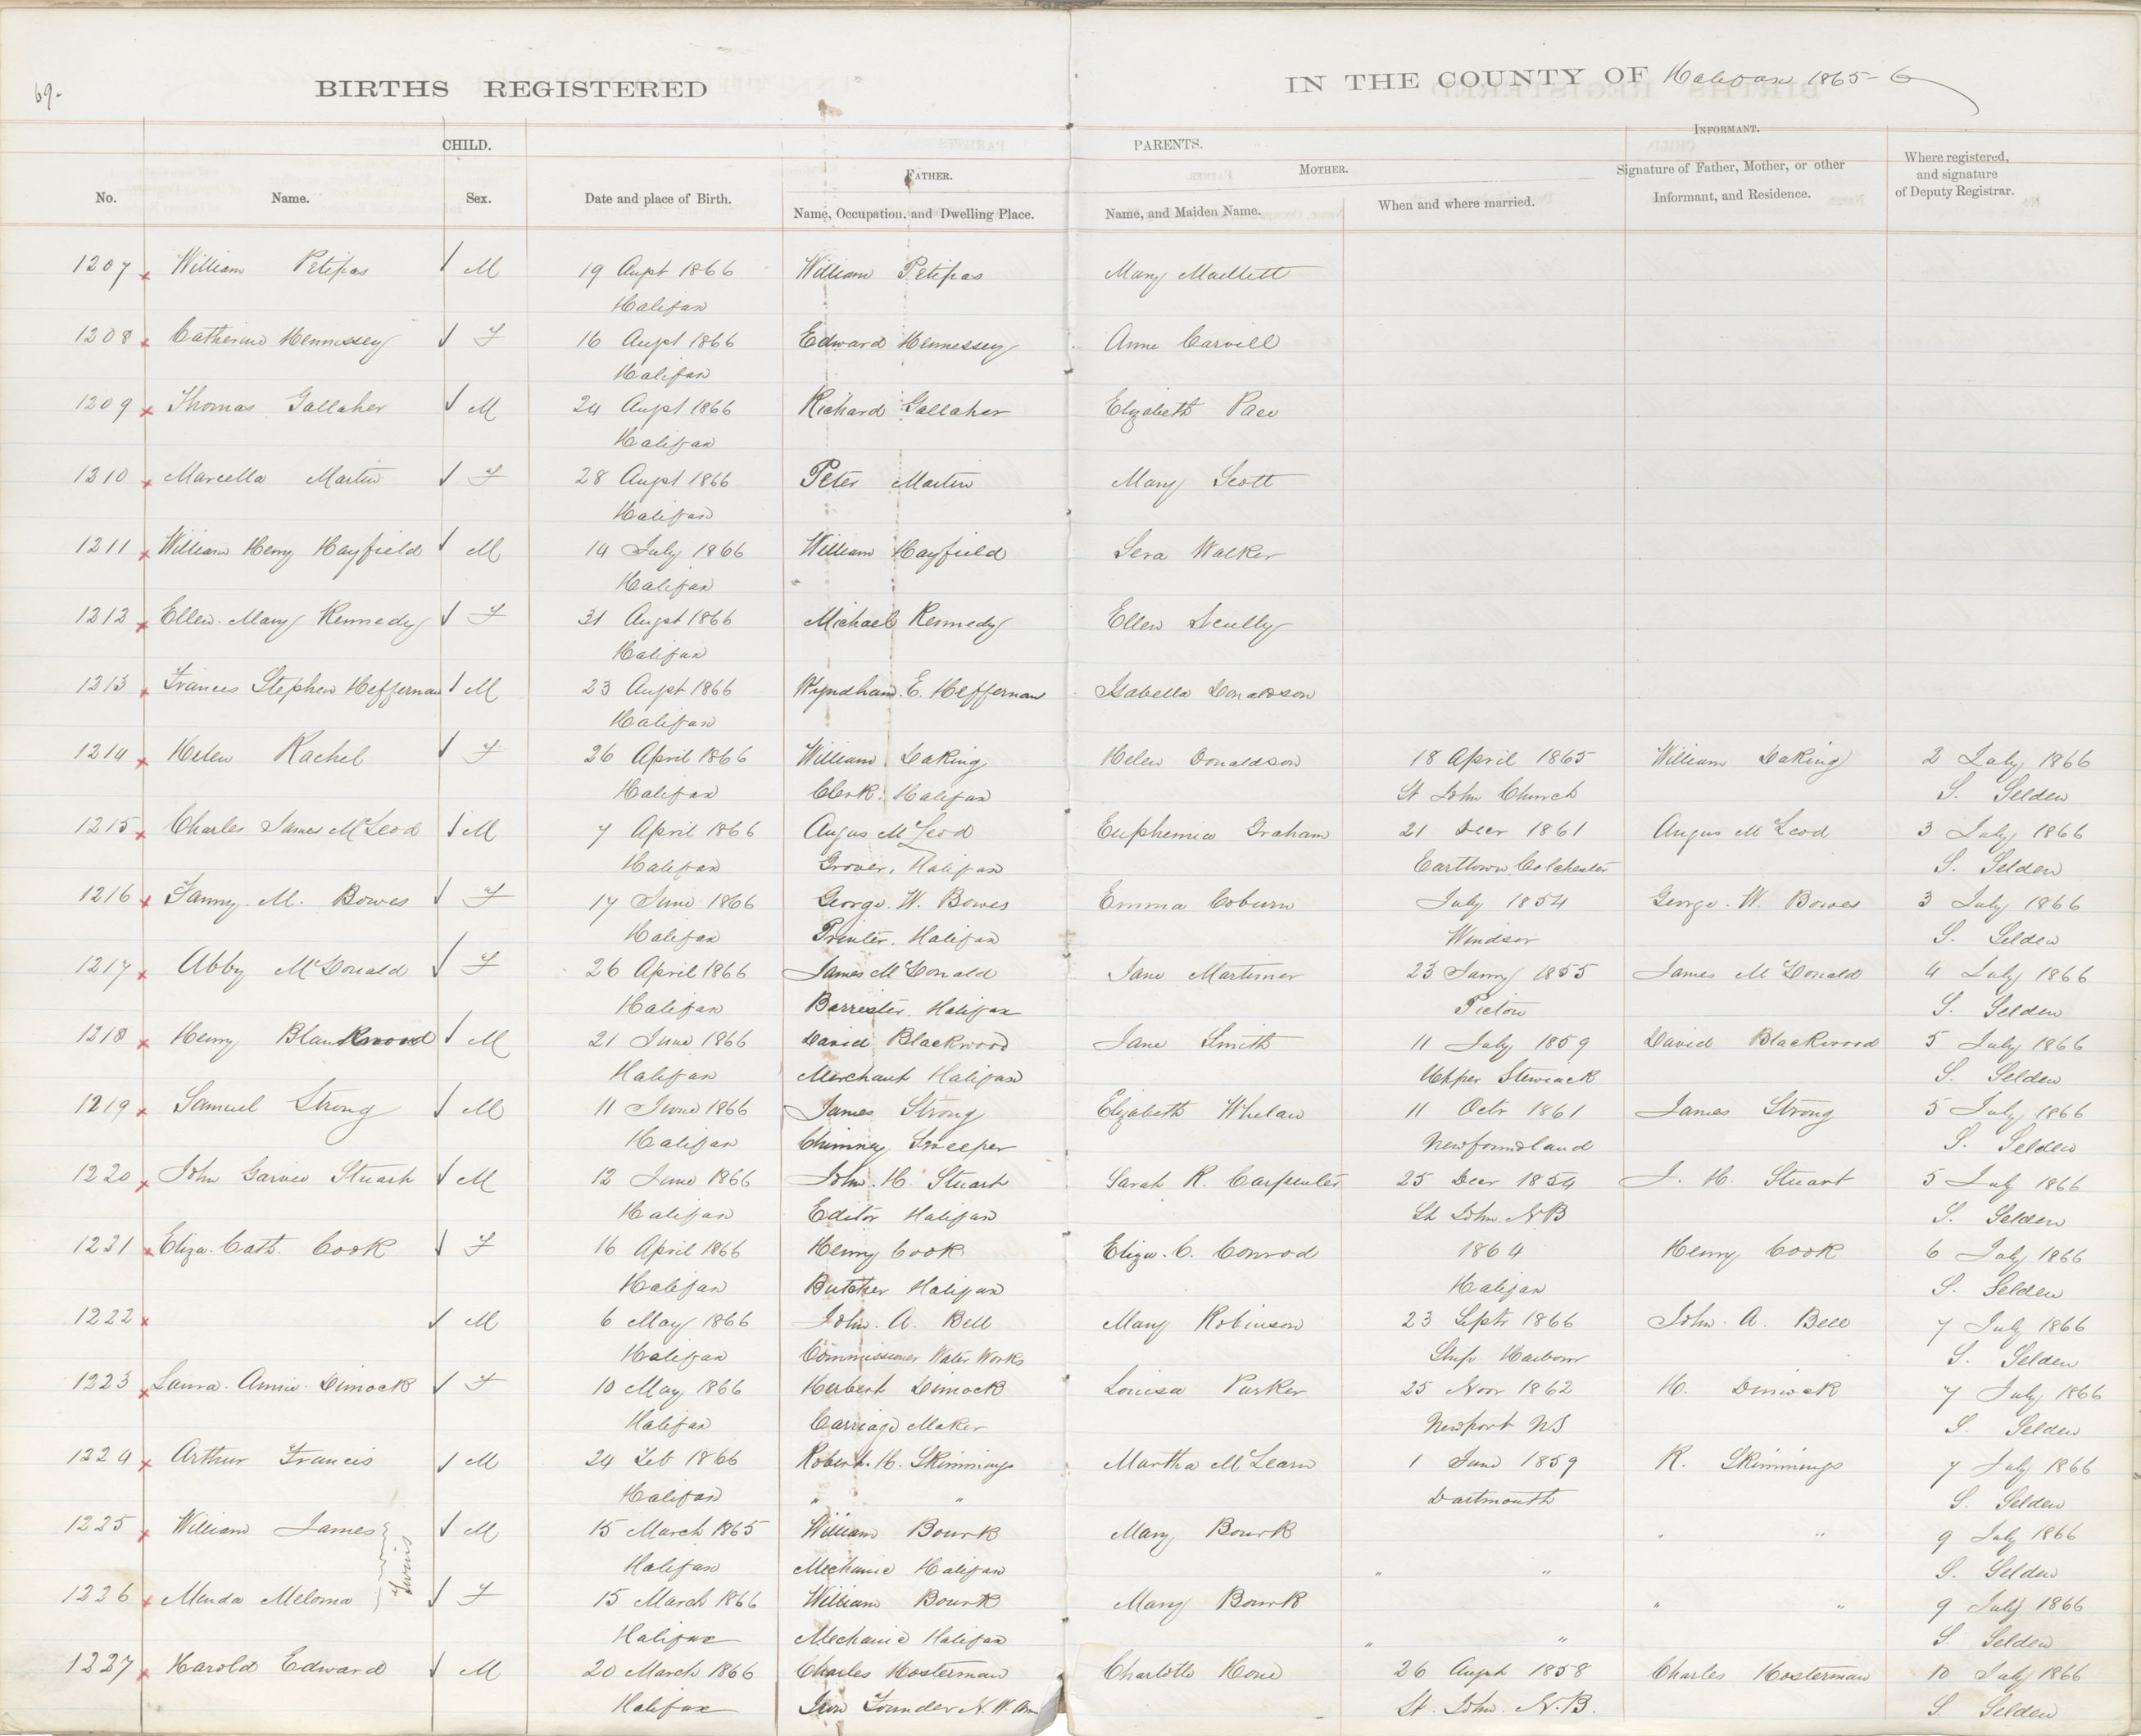 69-
BIRTHS REGISTERED
IN THE COUNTY OF Halifax 1865-6
CHILD.
PARENTS.
INFORMANT.
No.
Name.
Sex.
Date and place of Birth.
FATHER.
Name, Occupation, and Dwelling Place.
MOTHER.
Name, and Maiden Name.
When and where married.
Signature of Father, Mother, or other
Informant, and Residence.
Where registered,
and signature
of Deputy Registrar.
1207 William Petipas M 19 Augst 1866 William Petipas Mary Maillett
Halifax
1208 Catherine Hennissey F 16 Augst 1866 Edward Hennessey Anne Carvill
Halifax
1209 Thomas Gallaher M 24 Augst 1866 Richard Gallaher Elizabeth Pace
Halifax
1210 Marcella Martin F 28 Augst 1866 Peter Martin Mary Scott
Halifax
1211 William Henry Hayfield M 14 July 1866 William Hayfield Sera Walker
Halifax
1212 Ellen Mary Kennedy F 31 Augst 1866 Michael Kennedy Ellen Scully
Halifax
1213 Frances Stephen Heffernan M 23 Augst 1866 Wyndham. E. Heffernan Isabella Donaldson
Halifax
1214 Helen Rachel F 26 April 1866 William Daking Helen Donaldson 18 April 1865 William Daking 2 July 1866
Halifax Clerk. Halifax St John Church S. Selden
1215 Charles James McLeod M 7 April 1866 Angus McLeod Euphemia Graham 21 Decr 1861 Angus McLeod 3 July 1866
Halifax Grover, Halifax Earltown Colchester S. Selden
1216 Fanny. M. Bowes F 17 June 1866 George. W. Bowes Emma Coburn July 1854 George. W. Bowes 3 July 1866
Halifax Printer. Halifax Windsor S. Selden
1217 Abby McDonald F 26 April 1866 James McDonald Jane Mortimer 23 Janny 1855 James McDonald 4 July 1866
Halifax Barrister. Halifax Pictou S. Selden
1218 Henry Blackwood M 21 June 1866 David Blackwood Jane Smith 11 July 1859 David Blackwood 5 July 1866
Halifax Merchant Halifax Upper Stewiack S. Selden
1219 Samuel Strong M 11 June 1866 James Strong Elizabeth Whelan 11 Octr 1861 James Strong 5 July 1866
Halifax Chimney Sweeper Newfoundland S. Selden
1220 John Garvie Stuart M 12 June 1866 John. H. Stuart Sarah R. Carpenter 25 Decr 1854 J. H. Stuart 5 July 1866
Halifax Editor Halifax St John. NB S. Selden
1221 Eliza. Cath. Cook F 16 April 1866 Henry Cook Eliza. C. Conrod 1864 Henry Cook 6 July 1866
Halifax Butcher Halifax Halifax S. Selden
1222 M 6 May 1866 John. A. Bell Mary Robinson 23 Septr 1866 John. A. Bell 7 July 1866
Halifax Commissioner Water Works Ship Harbour S. Selden
1223 Laura. Annie. Dimock F 10 May 1866 Herbert Dimock Louisa Parker 25 Novr 1862 H. Dimock 7 July 1866
Halifax Carriage Maker Newport NS S. Selden
1224 Arthur Francis M 24 Feb 1866 Robert. H. Skimmings Martha McLearn 1 June 1859 R. Skimmings 7 July 1866
Halifax " " Dartmouth S. Selden
1225 William James M 15 March 1865 William Bourk Mary Bourk " " 9 July 1866
Twins
Halifax Mechanic Halifax " " S. Selden
1226 Menda Meloma F 15 March 1866 William Bourk Mary Bourk " " 9 July 1866
Halifax Mechanic Halifax " " S. Selden
1227 Harold Edward M 20 March 1866 Charles Hosterman Charlotte Hone 26 Augst 1858 Charles Hosterman 10 July 1866
Halifax Iron Founder N. W. Arm St. John. N.B. S. Selden